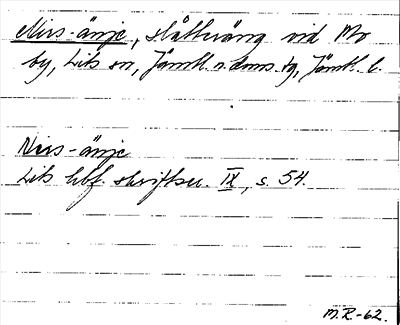 Nirs-änje, slåtteräng vid Mo
by, Lits sn, Jämtl. n. doms. tg, Jämtl. l.
Nirs-änje
Lits hbf. skriftser. IX, s. 54.
M.R.-62.